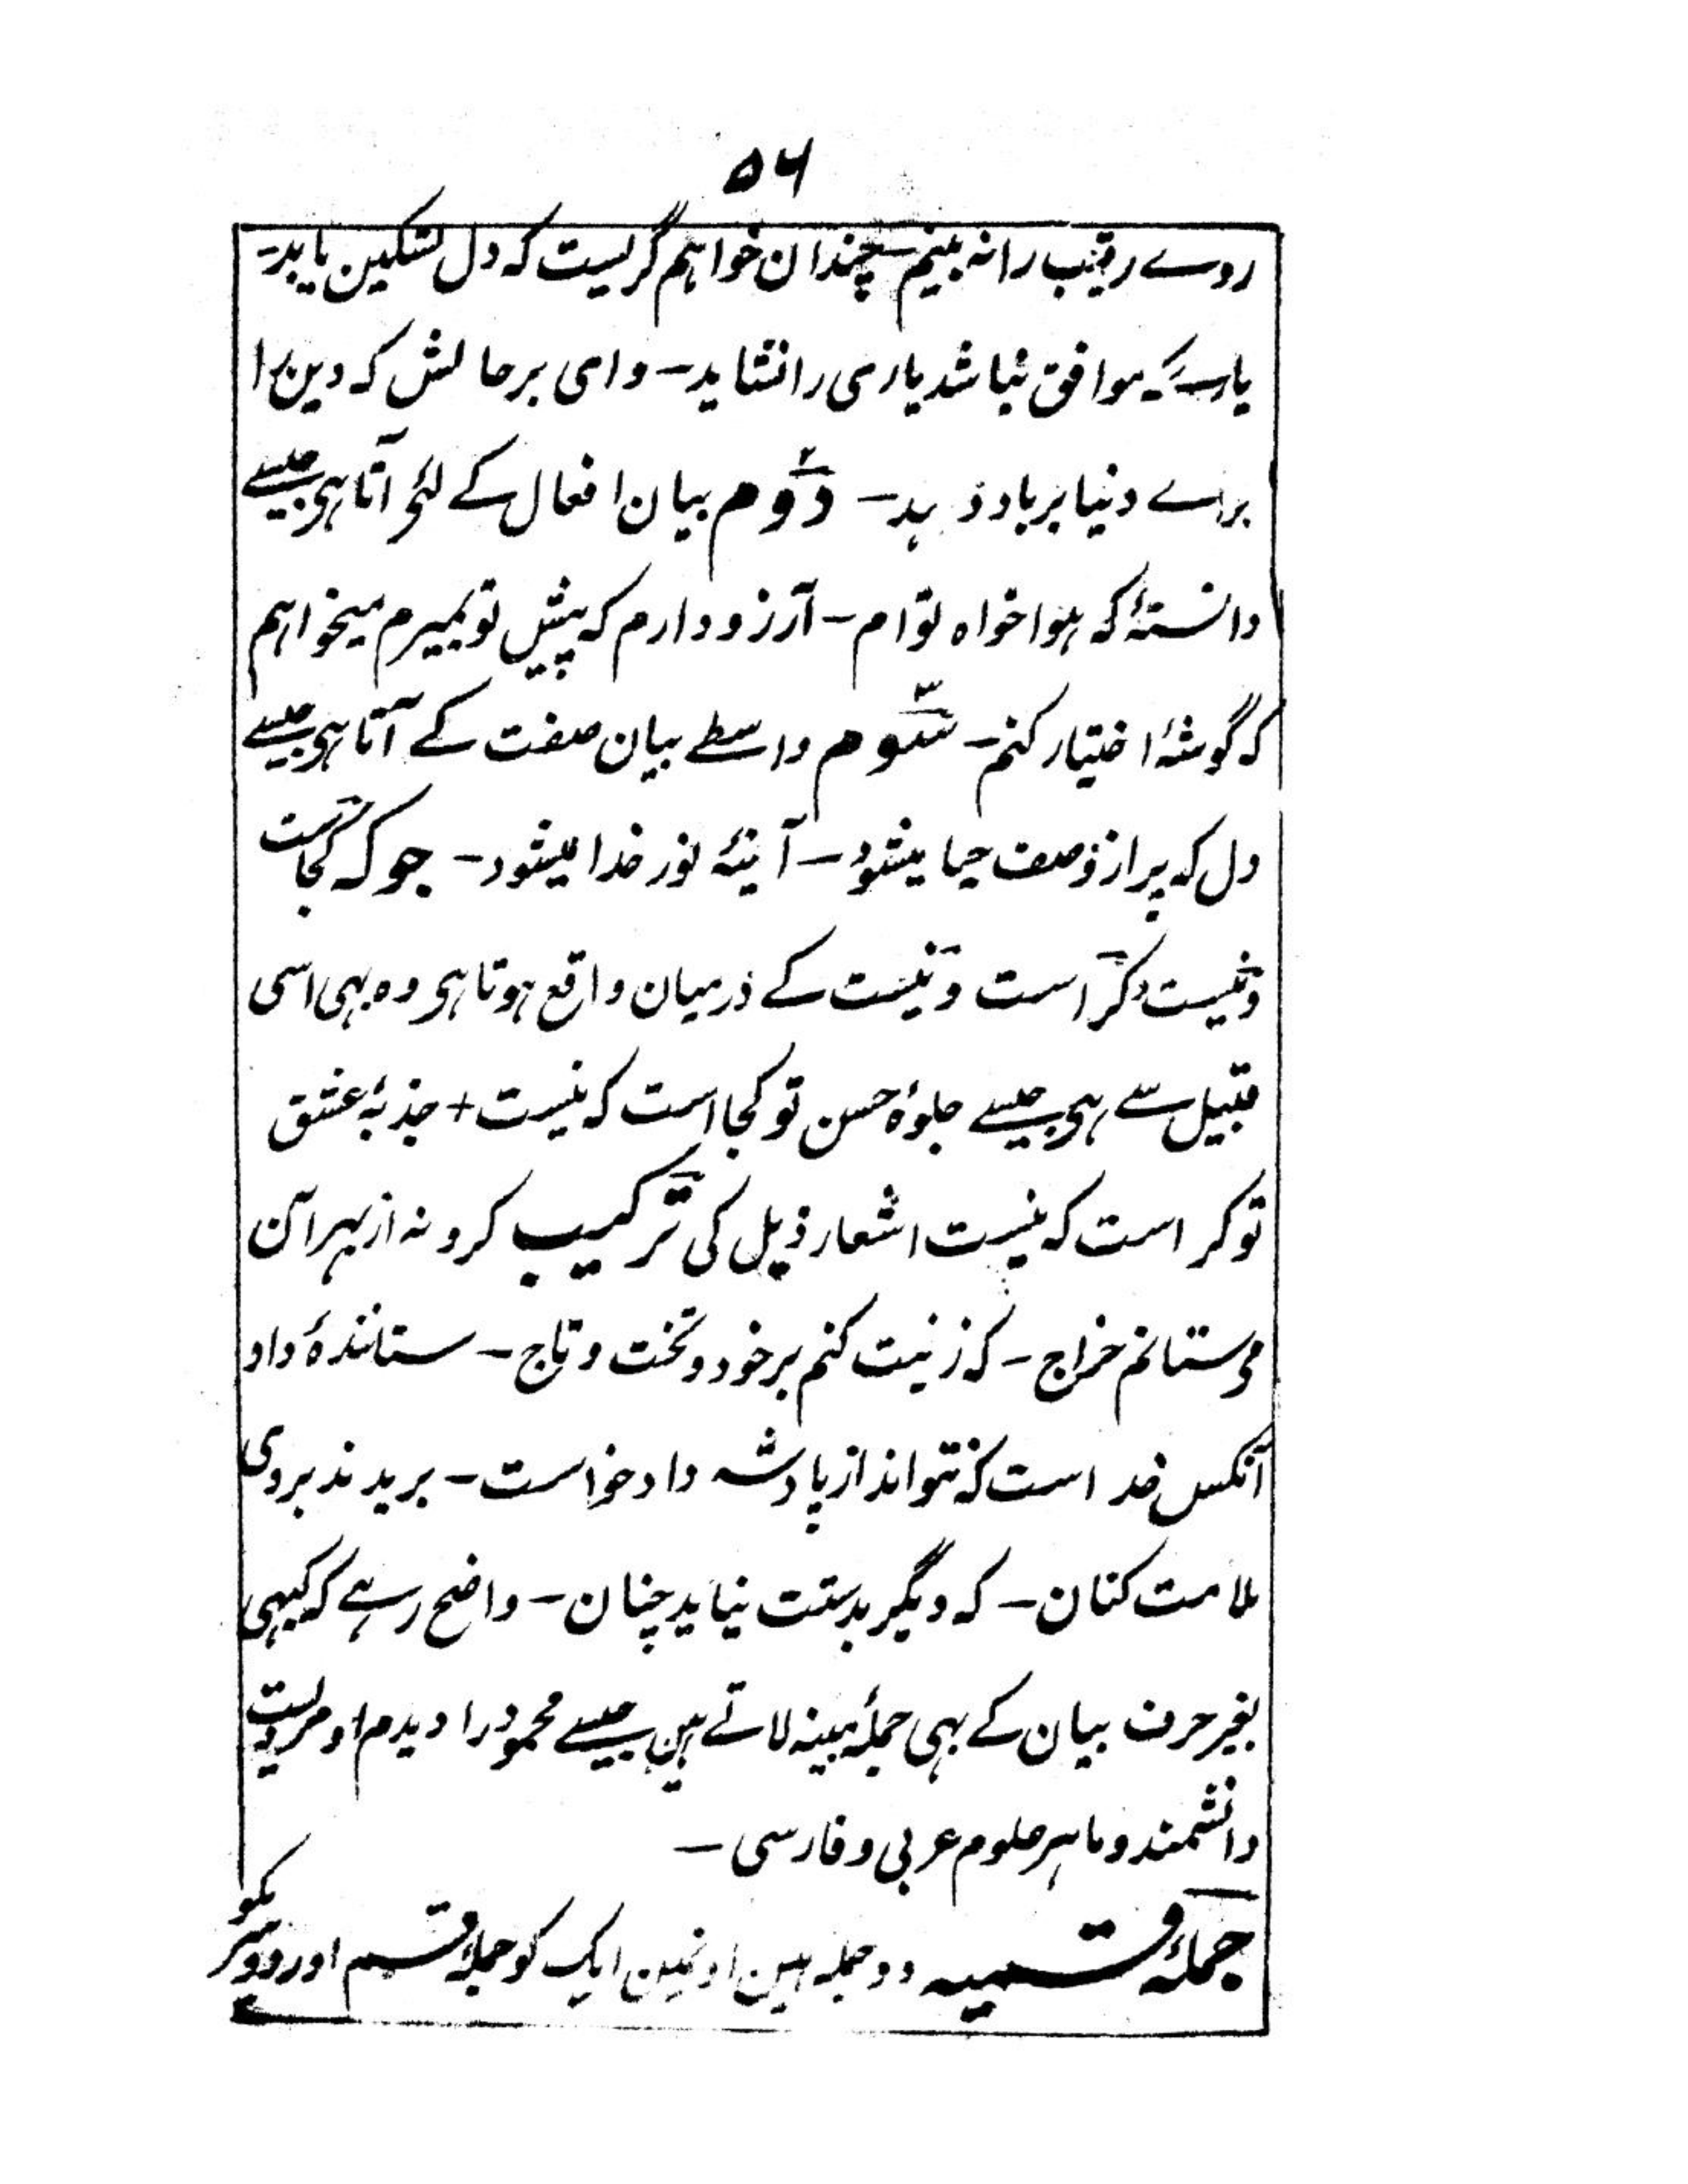 ۵۶
روے رقیب را نہ بینم۔ چندان خواہم گریست کہ دل تسکین یابد۔
یارے کہ موافق نباشد یاری را نشاید۔ وای بر حالش کہ دین را
براے دنیا برباد دہد۔ دوم بیان افعال کے لئی آتا ہی جیسے
دانستۂ کہ ہوا خواہ توام۔ آرزو دارم کہ پیش تو بمیرم میخواہم
کہ گوشۂ اختیار کنم۔ سوم واسطے بیان صفت کے آتا ہی جیسے
دل کہ پر از وصف حیا میشود۔ آینۂ نور خدا میشود۔ جو کہ کجاست
و نیست و کراست و نیست کے درمیان واقع ہوتا ہی وہ بہی اسی
قبیل سے ہی جیسے جلوۂ حسن تو کجا است کہ نیست + جذبۂ عشق
تو کر است کہ نیست اشعار ذیل کی ترکیب کرو نہ از بہر آن
می ستانم خراج۔ کہ زینت کنم بر خود و تخت و تاج۔ ستانندۂ داد
آنکس خدا است کہ نتواند از پادشہ داد خواست۔ بریدند بروی
ملامت کنان۔ کہ دیگر بدستت نیاید چنان۔ واضح رہے کہ کبہی
بغیر حرف بیان کے بہی جملۂ مبینہ لاتے ہین جیسے محمود را دیدم او مردیست
دانشمند و ماہر علوم عربی و فارسی۔
جملۂ قسمیہ دو جملہ ہین اونمین ایک کو جملۂ قسم اور دوسریکو